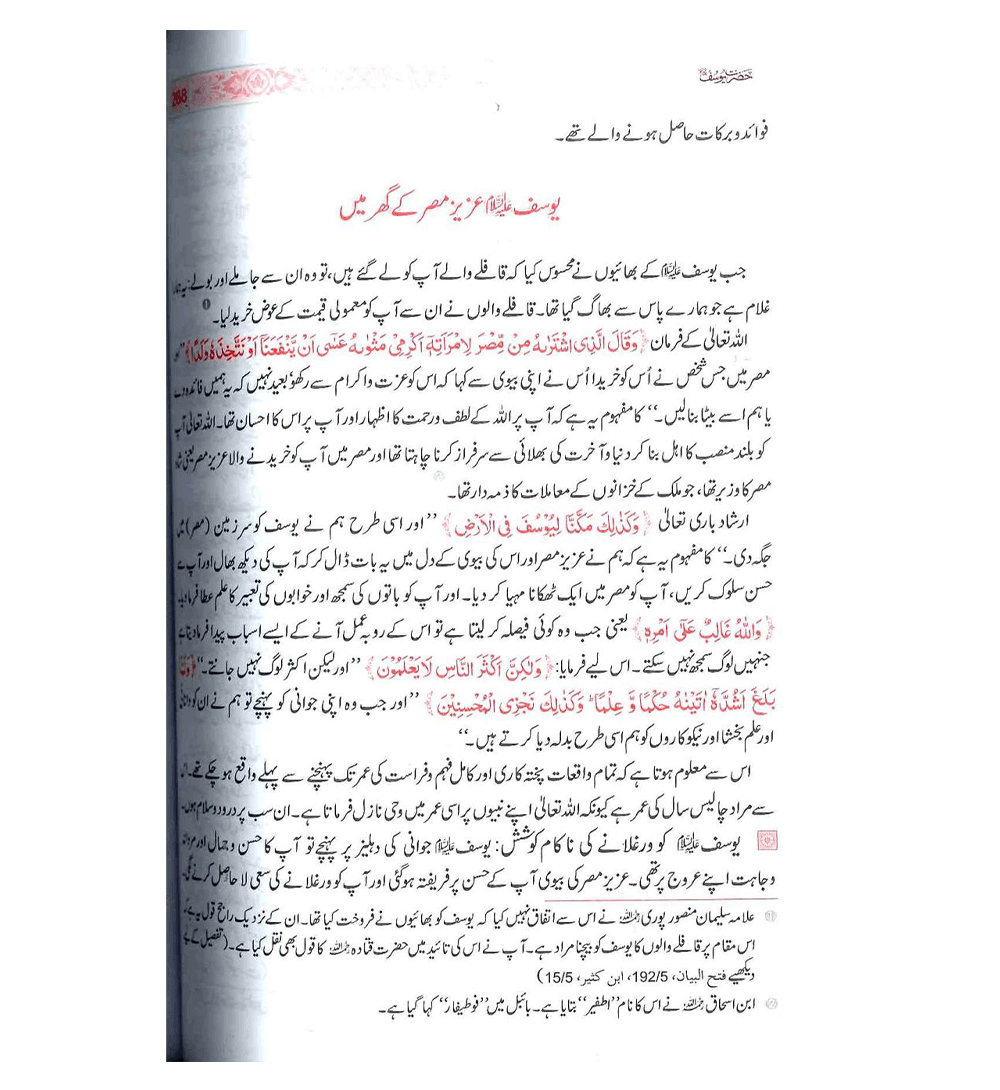 حضرت یوسف علیہ السلام
268
فوائد و برکات حاصل ہونے والے تھے۔
یوسف علیہ السلام عزیز مصر کے گھر میں
جب یوسف علیہ السلام کے بھائیوں نے محسوس کیا کہ قافلے والے آپ کو لے گئے ہیں، تو وہ ان سے جا ملے اور بولے: یہ ہمارا
غلام ہے جو ہمارے پاس سے بھاگ گیا تھا۔ قافلے والوں نے ان سے آپ کو معمولی قیمت کے عوض خرید لیا۔ ①
اللہ تعالیٰ کے فرمان ﴿وَقَالَ الَّذِی اشْتَرٰىهُ مِنْ مِّصْرَ لِامْرَاَتِهٖۤ اَكْرِمِیْ مَثْوٰىهُ عَسٰۤى اَنْ یَّنْفَعَنَاۤ اَوْ نَتَّخِذَهٗ وَلَدًا﴾
مصر میں جس شخص نے اُس کو خریدا اُس نے اپنی بیوی سے کہا کہ اس کو عزت و اکرام سے رکھو، بعید نہیں کہ یہ ہمیں فائدہ دے
یا ہم اسے بیٹا بنالیں۔‘‘ کا مفہوم یہ ہے کہ آپ پر اللہ کے لطف و رحمت کا اظہار اور آپ پر اس کا احسان تھا۔ اللہ تعالیٰ آپ
کو بلند منصب کا اہل بنا کر دنیا و آخرت کی بھلائی سے سرفراز کرنا چاہتا تھا اور مصر میں آپ کو خریدنے والا عزیز مصر یعنی شاہ
مصر کا وزیر تھا، جو ملک کے خزانوں کے معاملات کا ذمہ دار تھا۔ ②
ارشاد باری تعالیٰ ﴿وَكَذٰلِكَ مَكَّنَّا لِیُوْسُفَ فِی الْاَرْضِ﴾ ’’اور اسی طرح ہم نے یوسف کو سرزمین (مصر) میں
جگہ دی۔‘‘ کا مفہوم یہ ہے کہ ہم نے عزیز مصر اور اس کی بیوی کے دل میں یہ بات ڈال کر کہ آپ کی دیکھ بھال اور آپ سے
حسن سلوک کریں، آپ کو مصر میں ایک ٹھکانا مہیا کر دیا۔ اور آپ کو باتوں کی سمجھ اور خوابوں کی تعبیر کا علم عطا فرما دیا۔
﴿وَاللّٰهُ غَالِبٌ عَلٰۤى اَمْرِهٖ﴾ یعنی جب وہ کوئی فیصلہ کر لیتا ہے تو اس کے رو بہ عمل آنے کے ایسے اسباب پیدا فرما دیتا ہے
جنہیں لوگ سمجھ نہیں سکتے۔ اس لیے فرمایا: ﴿وَلٰكِنَّ اَكْثَرَ النَّاسِ لَا یَعْلَمُوْنَ﴾ ’’اور لیکن اکثر لوگ نہیں جانتے۔‘‘ ﴿وَلَمَّا
بَلَغَ اَشُدَّهٗۤ اٰتَیْنٰهُ حُكْمًا وَّ عِلْمًا ؕ وَكَذٰلِكَ نَجْزِی الْمُحْسِنِیْنَ﴾ ’’اور جب وہ اپنی جوانی کو پہنچے تو ہم نے ان کو دانائی
اور علم بخشا اور نیکو کاروں کو ہم اسی طرح بدلہ دیا کرتے ہیں۔‘‘
اس سے معلوم ہوتا ہے کہ تمام واقعات پختہ کاری اور کامل فہم و فراست کی عمر تک پہنچنے سے پہلے واقع ہو چکے تھے۔ اس
سے مراد چالیس سال کی عمر ہے کیونکہ اللہ تعالیٰ اپنے نبیوں پر اسی عمر میں وحی نازل فرماتا ہے۔ ان سب پر درود و سلام ہوں۔
یوسف علیہ السلام کو ورغلانے کی ناکام کوشش: یوسف علیہ السلام جوانی کی دہلیز پر پہنچے تو آپ کا حسن و جمال اور مردانہ
وجاہت اپنے عروج پر تھی۔ عزیز مصر کی بیوی آپ کے حسن پر فریفتہ ہوگئی اور آپ کو ورغلانے کی سعی لا حاصل کرنے لگی۔
① علامہ سلیمان منصور پوری رحمہ اللہ نے اس سے اتفاق نہیں کیا کہ یوسف کو بھائیوں نے فروخت کیا تھا۔ ان کے نزدیک راجح قول یہ ہے کہ
اس مقام پر قافلے والوں کا یوسف کو بیچنا مراد ہے۔ آپ نے اس کی تائید میں حضرت قتادہ رحمہ اللہ کا قول بھی نقل کیا ہے۔ (تفصیل کے لیے
دیکھیے فتح البیان، 192/5، ابن کثیر، 15/5)
② ابن اسحاق رحمہ اللہ نے اس کا نام ’’اطفیر‘‘ بتایا ہے۔ بائبل میں ’’فوطیفار‘‘ کہا گیا ہے۔